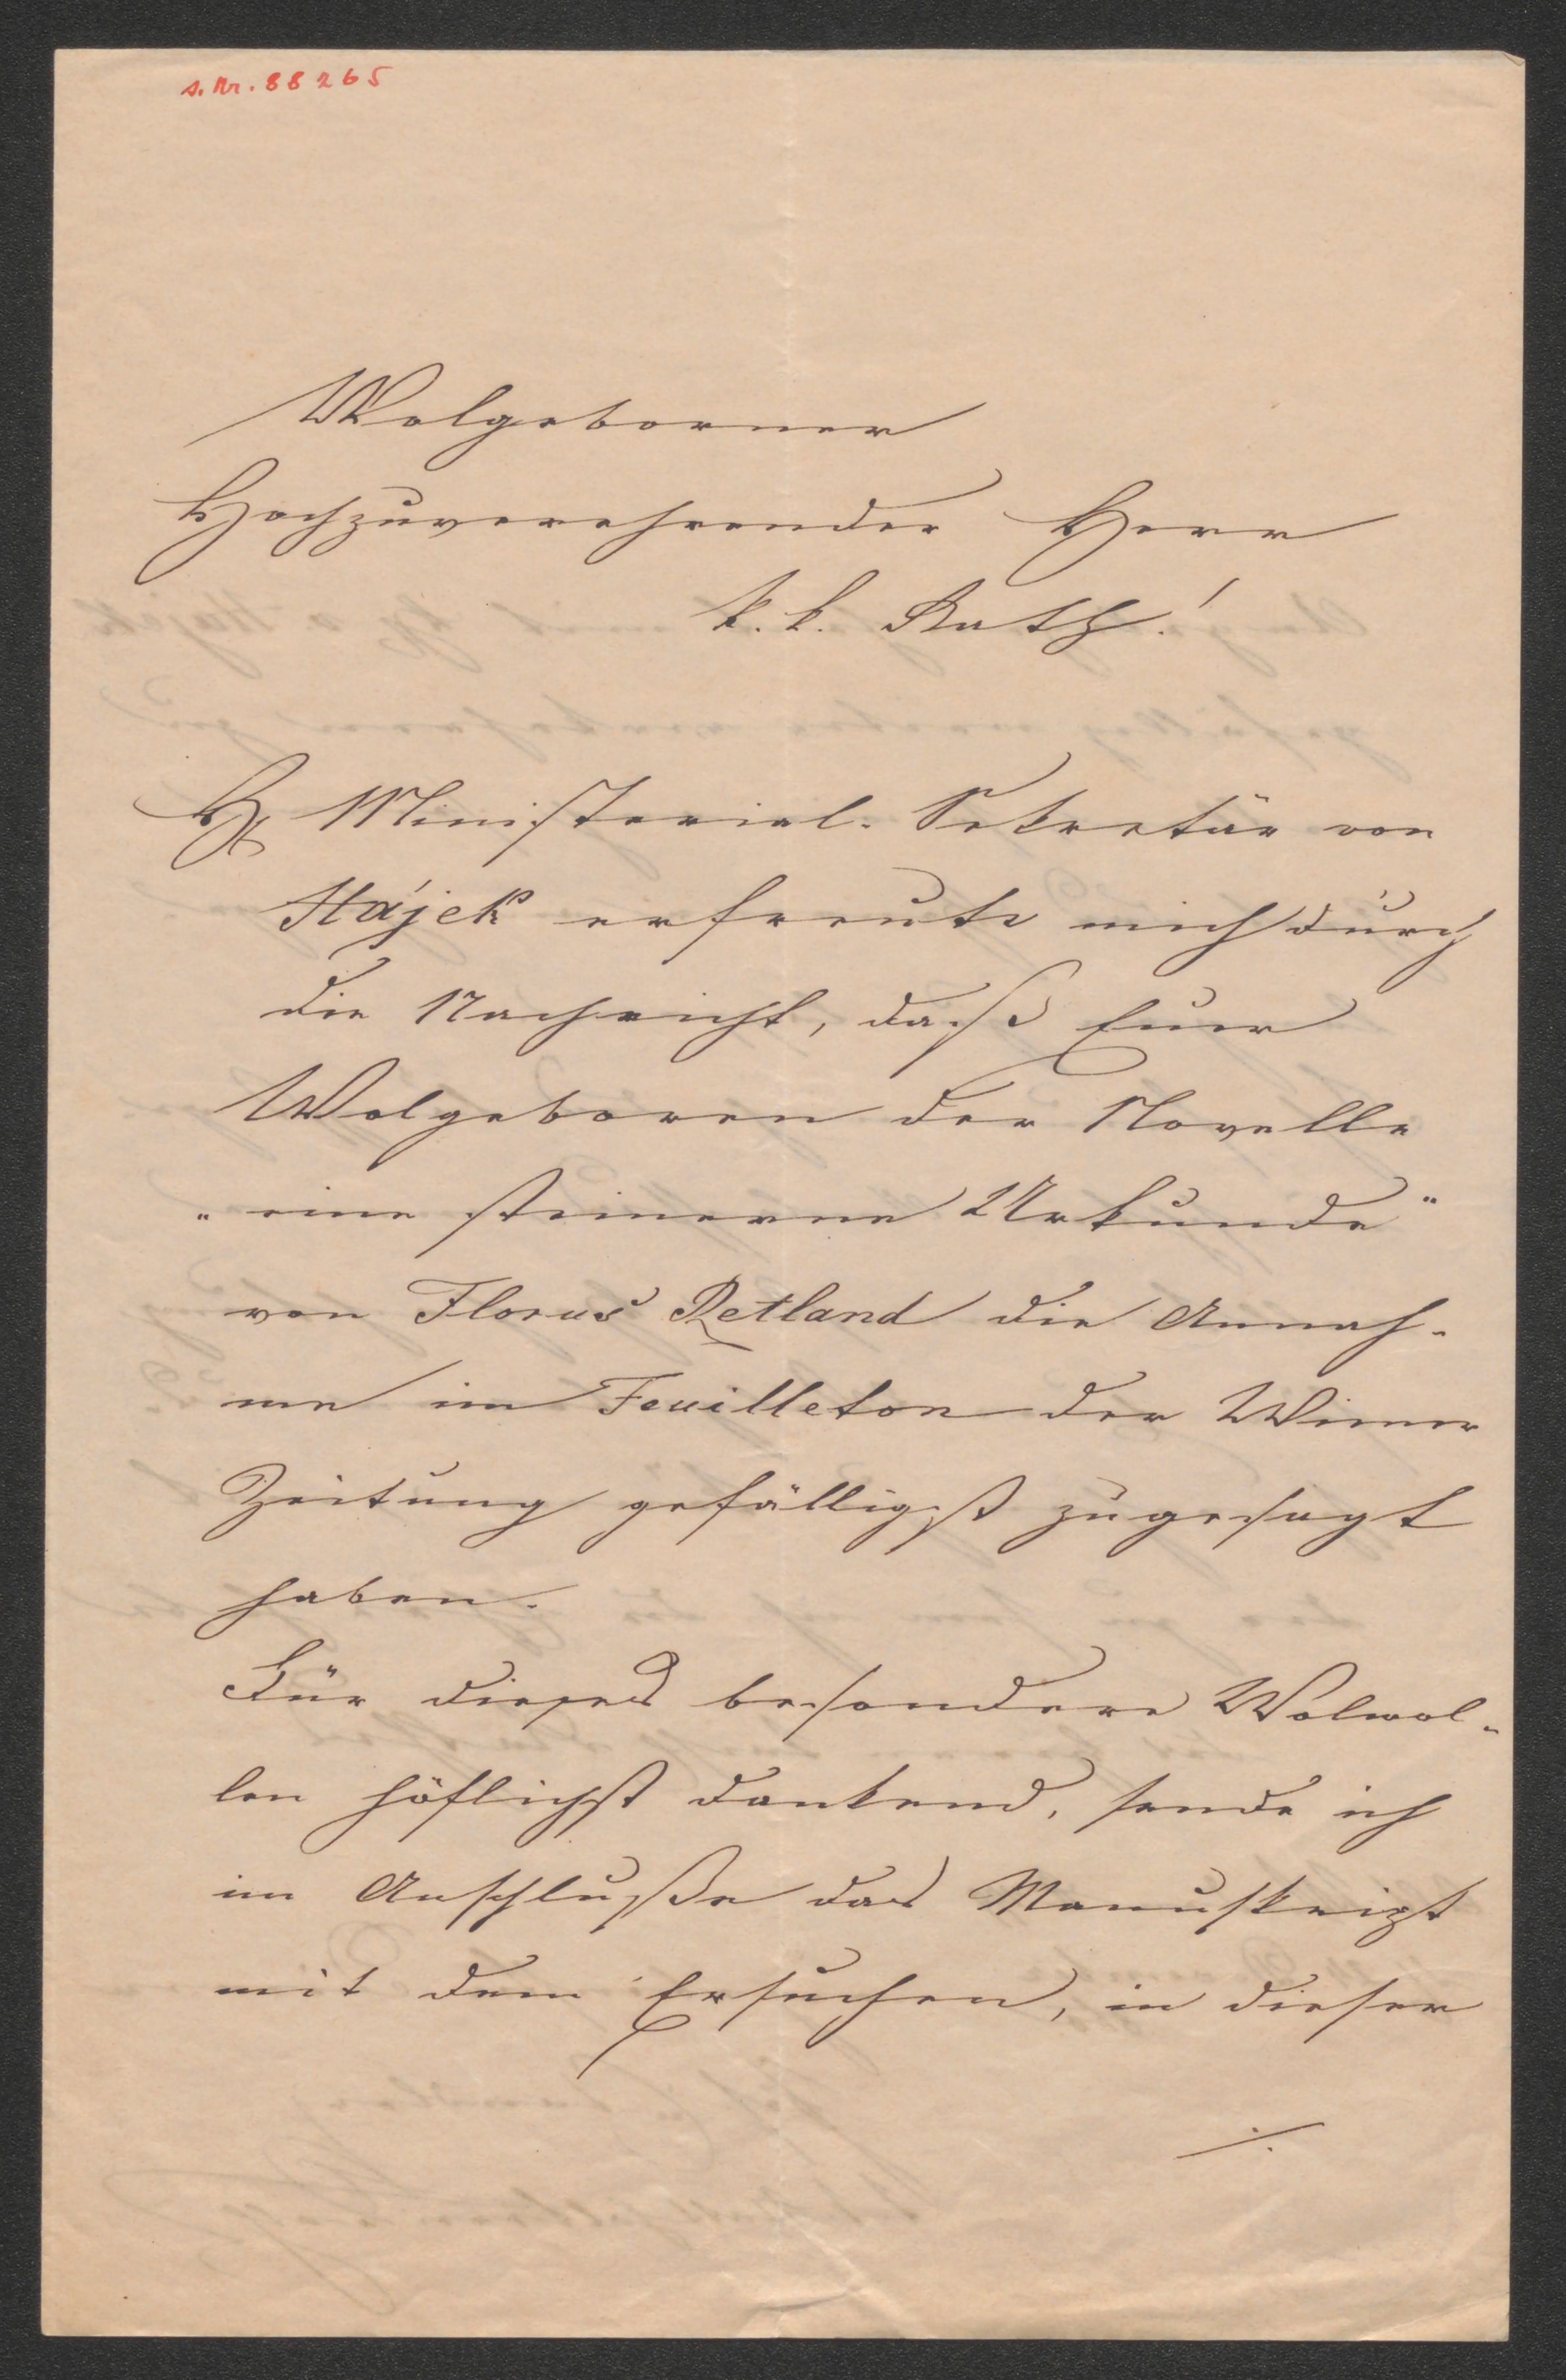 s. Nr. 88265
Wolgeborner
Hochzuverehrender Herr
k. k. Rath!
H Ministerial-Sekretär von
Hájek erfreute mich durch
die Nachricht, dass Euer
Wolgeboren der Novelle
„eine steinerne Urkunde"
von Florus Retland die Annah-
me im Feuilleton der Wiener
Zeitung gefälligst zugesagt
haben.
Für dieses besondere Wolwol-
len höflichst dankend, sende ich
im Anschlusße das Manuskript
mit dem Ersuchen, in dieser
./.